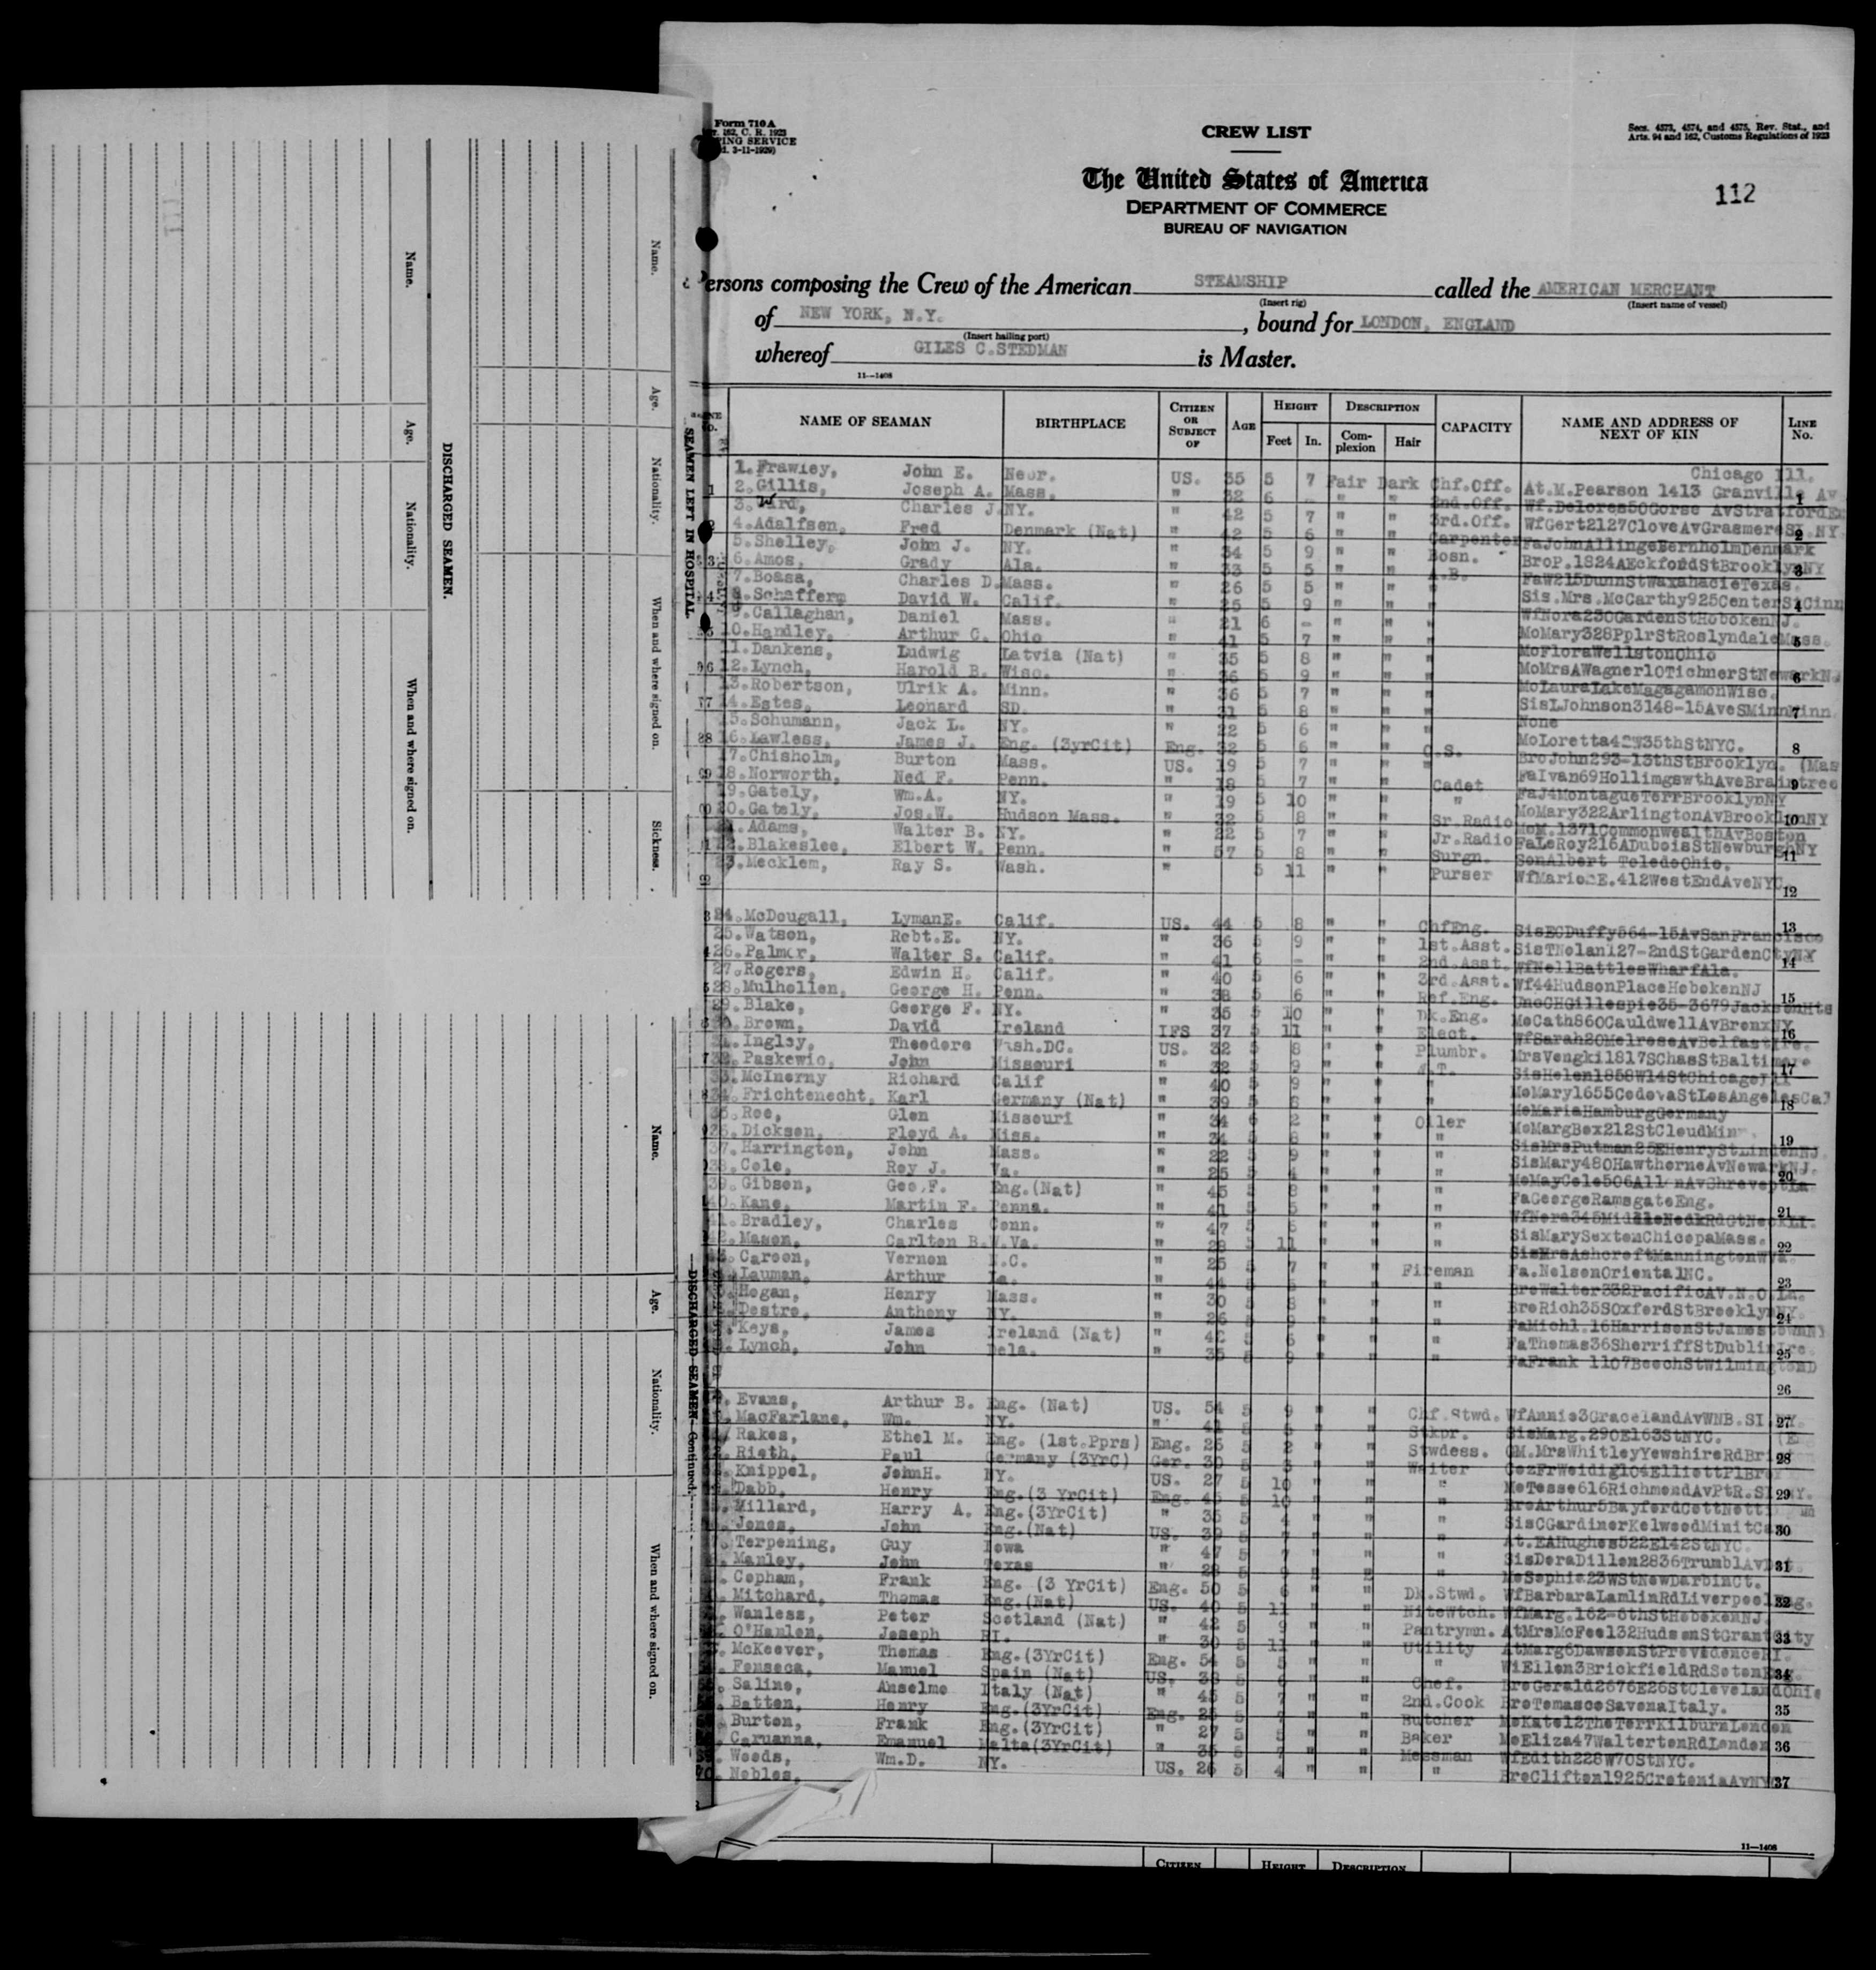 Form 710A
162, C. R. 1923
PING SERVICE
3-11-1929)
CREW LIST
Secs. 4573, 4574, and 4575, Rev. Stat., and
Arts. 94 and 162, Customs Regulations of 1923
The United States of America
DEPARTMENT OF COMMERCE
BUREAU OF NAVIGATION
112
Persons composing the Crew of the American STEAMSHIP called the AMERICAN MERCHANT
(Insert rig) (Insert name of vessel)
of NEW YORK, N.Y. , bound for LONDON, ENGLAND
(Insert hailing port)
whereof GILES C.STEDMAN is Master.
11—1408
NAME OF SEAMAN BIRTHPLACE CITIZEN OR SUBJECT OF AGE HEIGHT Feet In. DESCRIPTION Complexion Hair CAPACITY NAME AND ADDRESS OF NEXT OF KIN LINE No.
Chicago Ill.
1. Frawley, John E. Nebr. US. 35 5 7 Fair Dark Chf.Off. At.M.Pearson 1413 Granville Av
2. Gillis, Joseph A. Mass. " 32 6 - " " 2nd.Off. Wf.Delores50Gorse AvStratford
3. Ward, Charles J. NY. " 42 5 7 " " 3rd.Off. WfGert2127CloveAvGrasmereSI.NY.
4. Adalfsen, Fred Denmark (Nat) " 42 5 6 " " Carpenter FaJohnAllingeBernholmDenmark
5. Shelley, John J. NY. " 34 5 9 " " Bosn. BroP.1824AEckfordStBrooklynNY
6. Amos, Grady Ala. " 33 5 5 " " A.B. FaW215DunnStWaxahacieTexas.
7. Boasa, Charles D. Mass. " 26 5 5 " " " Sis.Mrs.McCarthy925CenterStCinn
8. Schafferm David W. Calif. " 25 5 9 " " " WfNora230GardenStHobokenNJ.
9. Callaghan, Daniel Mass. " 21 6 - " " " MoMary328PplrStRoslyndaleMass.
10. Handley, Arthur C. Ohio " 41 5 7 " " " MoFloraWellstonOhio
11. Dankens, Ludwig Latvia (Nat) " 35 5 8 " " " MoMrsAWagner10TichnerStNewarkNJ
12. Lynch, Harold B. Wisc. " 36 5 9 " " " MoLauraLakeMagagamonWisc.
13. Robertson, Ulrik A. Minn. " 36 5 7 " " " SisLJohnson3148-15AveSMinnMinn
14. Estes, Leonard SD. " 21 5 8 " " " None
15. Schumann, Jack L. NY. " 22 5 6 " " " MoLoretta42W35thStNYC.
16. Lawless, James J. Eng. (3yrCit) Eng. 32 5 6 " " O.S. BroJohn293-13thStBrooklyn. (Mas
17. Chisholm, Burton Mass. US. 19 5 7 " " " FaIvan69HollimgswthAveBraintree
18. Norworth, Ned F. Penn. " 18 5 7 " " Cadet FaJ4MontagueTerrBrooklynNY
19. Gately, Wm.A. NY. " 19 5 10 " " " MoMary322ArlingtonAvBrooklynNY
20. Gately, Jos.W. Hudson Mass. " 32 5 8 " " Sr.Radio MoM.1371CommonwealthAvBoston
21. Adams, Walter B. NY. " 22 5 7 " " Jr.Radio FaLeRoy216ADuboisStNewburghNY
22. Blakeslee, Elbert W. Penn. " 57 5 8 " " Surgn. SonAlbert ToledoOhio.
23. Mecklem, Ray S. Wash. " 5 11 " " Purser WfMarionE.412WestEndAveNYC.
24. McDougall, LymanE. Calif. US. 44 5 8 " " ChfEng. SisECDuffy564-15AvSanFrancisco
25. Watson, Robt.E. NY. " 36 5 9 " " 1st.Asst. SisTNolan127-2ndStGardenCtyNY
26. Palmer, Walter S. Calif. " 41 6 - " " 2nd.Asst. WfNellBattlesWharfAla.
27. Rogers, Edwin H. Calif. " 40 5 6 " " 3rd.Asst. Wf44HudsonPlaceHobokenNJ
28. Mulhollen, George H. Penn. " 38 5 6 " " Ref.Eng. UncCHGillespie35-3679JacksonHts
29. Blake, George F. NY. " 35 5 10 " " Dk.Eng. MoCath860CauldwellAvBronxNY
30. Brown, David Ireland IFS 37 5 11 " " Elect. WfSarah20MelroseAvBelfastIre.
31. Ingley, Theodore Wash.DC. US. 32 5 8 " " Plumbr. MrsVengki1817SChasStBaltimore
32. Paskewic, John Missouri " 32 5 9 " " W.T. SisHelen1858W14StChicagoIll
33. McInerny Richard Calif " 40 5 9 " " " MoMary1655CodovaStLosAngelesCal
34. Frichtenecht, Karl Germany (Nat) " 39 5 6 " " " MoMariaHamburgGermany
35. Roe, Glen Missouri " 34 6 2 " " Oiler MoMargBox212StCloudMinn.
36. Dickson, Floyd A. Miss. " 34 5 8 " " " SisMrsPutman25EHenryStLindenNJ.
37. Harrington, John Mass. " 22 5 9 " " " SisMary480HawthorneAvNewarkNJ.
38. Cole, Roy J. Va. " 25 5 4 " " " MoMayCole506AllenAvShreveptLa
39. Gibson, Geo.F. Eng.(Nat) " 45 5 8 " " " FaGeorgeRamsgateEng.
40. Kane, Martin F. Penna. " 41 5 5 " " " WfNora345MiddleNeckRdGtNeckLI.
41. Bradley, Charles Conn. " 47 5 5 " " " SisMarySextonChicopaMass.
42. Mason, Carlton B. W.Va. " 28 5 11 " " " SisMrsAshcroftManningtonWVa.
Carson, Vernon N.C. " 25 5 7 " " Fireman Fa.NelsonOrientalNC.
Lauman, Arthur La. " 44 5 5 " " " BroWalter332PacificAv.N.O.La.
Hogan, Henry Mass. " 30 5 8 " " " BroRich35SOxfordStBrooklynNY.
Destro, Anthony NY. " 26 5 9 " " " FaMichl.16HarrisonStJamestownNY
Keys, James Ireland (Nat) " 42 5 6 " " " FaThomas36SherriffStDublinIre.
Lynch, John Dela. " 35 5 9 " " " FaFrank 1107BeechStWilmingtonD
Evans, Arthur B. Eng. (Nat) US. 54 5 9 " " Chf.Stwd. WfAnnis3GracelandAvWNB.SI.NY.
MacFarlane, Wm. NY. " 41 5 6 " " Stkpr. SisMarg.290E163StNYC.
Rakes, Ethel M. Eng. (1st.Pprs) Eng. 25 5 2 " " Stwdess. GM.MrsWhitleyYewshireRdBri
Rieth, Paul Germany (3YrC) Ger. 30 5 8 " " Waiter CozFrWeidig104ElliottPlBro
Knippel, JohnH. NY. US. 27 5 10 " " " MoTesse616RichmondAvPtR.SI.NY.
Dabb, Henry Eng.(3 YrCit) Eng. 45 5 10 " " " BroArthur5BayfordCottNotti
Millard, Harry A. Eng.(3YrCit) " 35 5 4 " " " SisCGardinerKelwoodMinitCa
Jones, John Eng.(Nat) US. 39 5 7 " " " At.EAHughes522E142StNYC.
Terpening, Guy Iowa " 47 5 7 " " " SisDoraDillon2836TrumblAv
Manley, John Texas " 28 5 9 " " " MoSophia23WStNewDarbinCt.
Copham, Frank Eng. (3 YrCit) Eng. 50 5 6 " " Dk.Stwd. WfBarbaraLamlinRdLiverpoolEng.
Mitchard, Thomas Eng.(Nat) US. 40 5 11 " " Nitewtch. WfMarg.162-6thStHobokenNJ.
Wanless, Peter Scotland (Nat) " 42 5 9 " " Pantrymn. AtMrsMcFee132HudsonStGrantCity
O'Hanlon, Joseph RI. " 30 5 11 " " Utility AtMarg6DawsonStProvidenceRI.
McKeever, Thomas Eng.(3YrCit) Eng. 54 5 5 " " " WiEllen3BrickfieldRdSetonEng.
Fonseca, Manuel Spain (Nat) US. 38 5 6 " " Chef. BroGerald2676E26StClevelandOhio
Saline, Anselmo Italy (Nat) " 45 5 7 " " 2nd.Cook BroTomascoSavenaItaly.
Batten, Henry Eng.(3YrCit) Eng. 25 5 7 " " Butcher MoKate12TheTerrKilburnLondon
Burton, Frank Eng.(3YrCit) " 27 5 5 " " Baker MoEliza47WaltertonRdLondon
Caruanna, Emanuel Malta(3YrCit) " 35 5 7 " " Messman WfEdith228W70StNYC.
Woods, Wm.D. NY. US. 26 5 4 " " " BroClifton1925CrotoniaAvNY
70. Nobles,
11—1408
CITIZEN HEIGHT DESCRIPTION
SEAMEN LEFT IN HOSPITAL
Name. Age. Nationality. When and where signed on. Sickness.
DISCHARGED SEAMEN.
Name. Age. Nationality. When and where signed on.
DISCHARGED SEAMEN—Continued.
Name. Age. Nationality. When and where signed on.